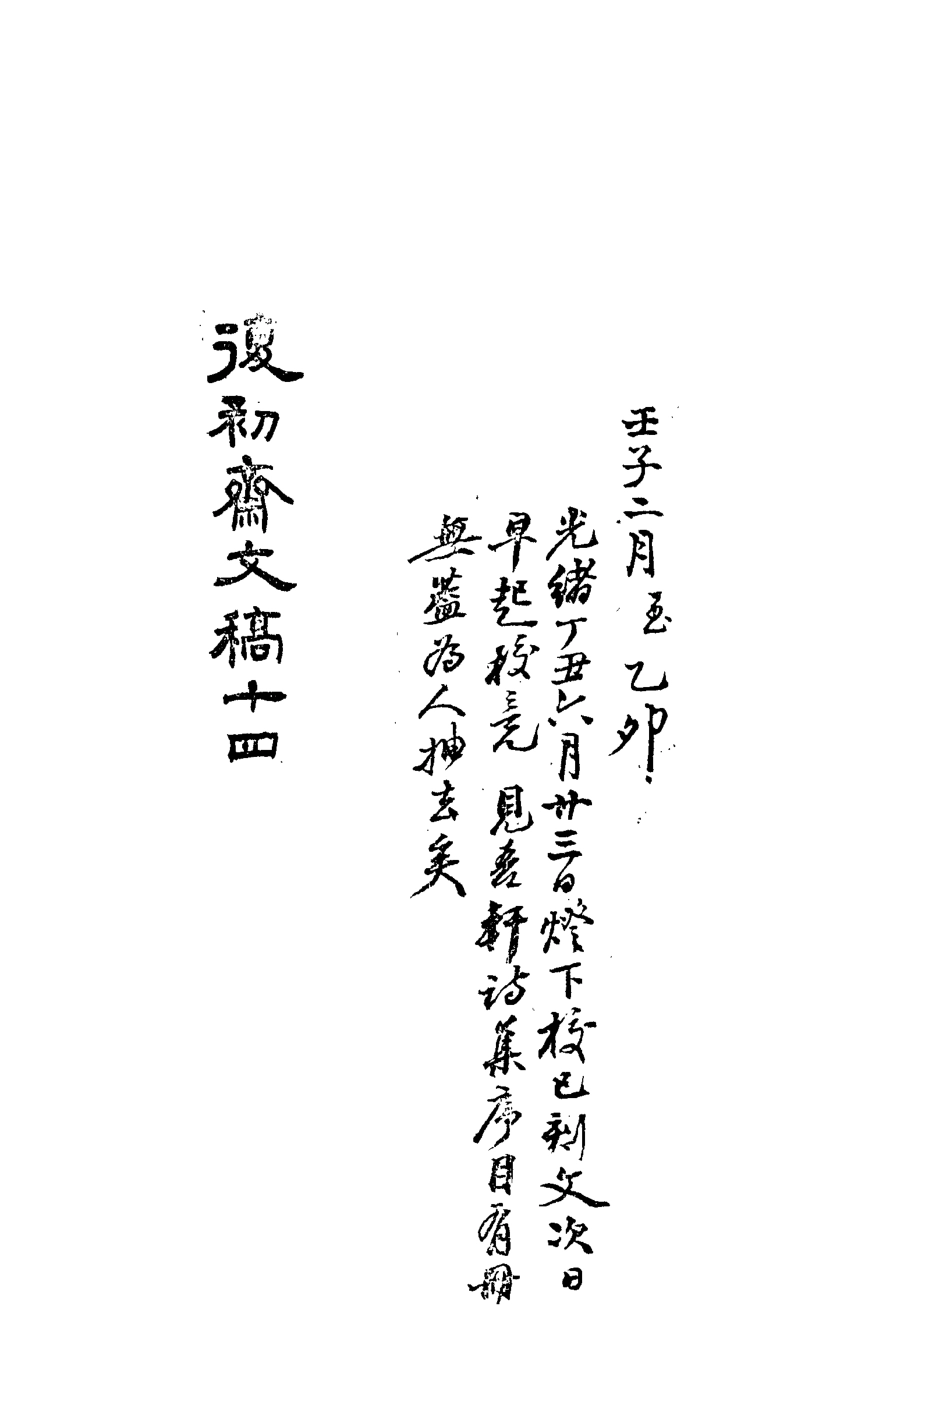 壬子二月至乙卯
光緒丁丑六月廿三日燈下校已刻文次日
早起校竟 見吾軒詩集序目有冊
無蓋為人抽去矣
復初齋文稿十四